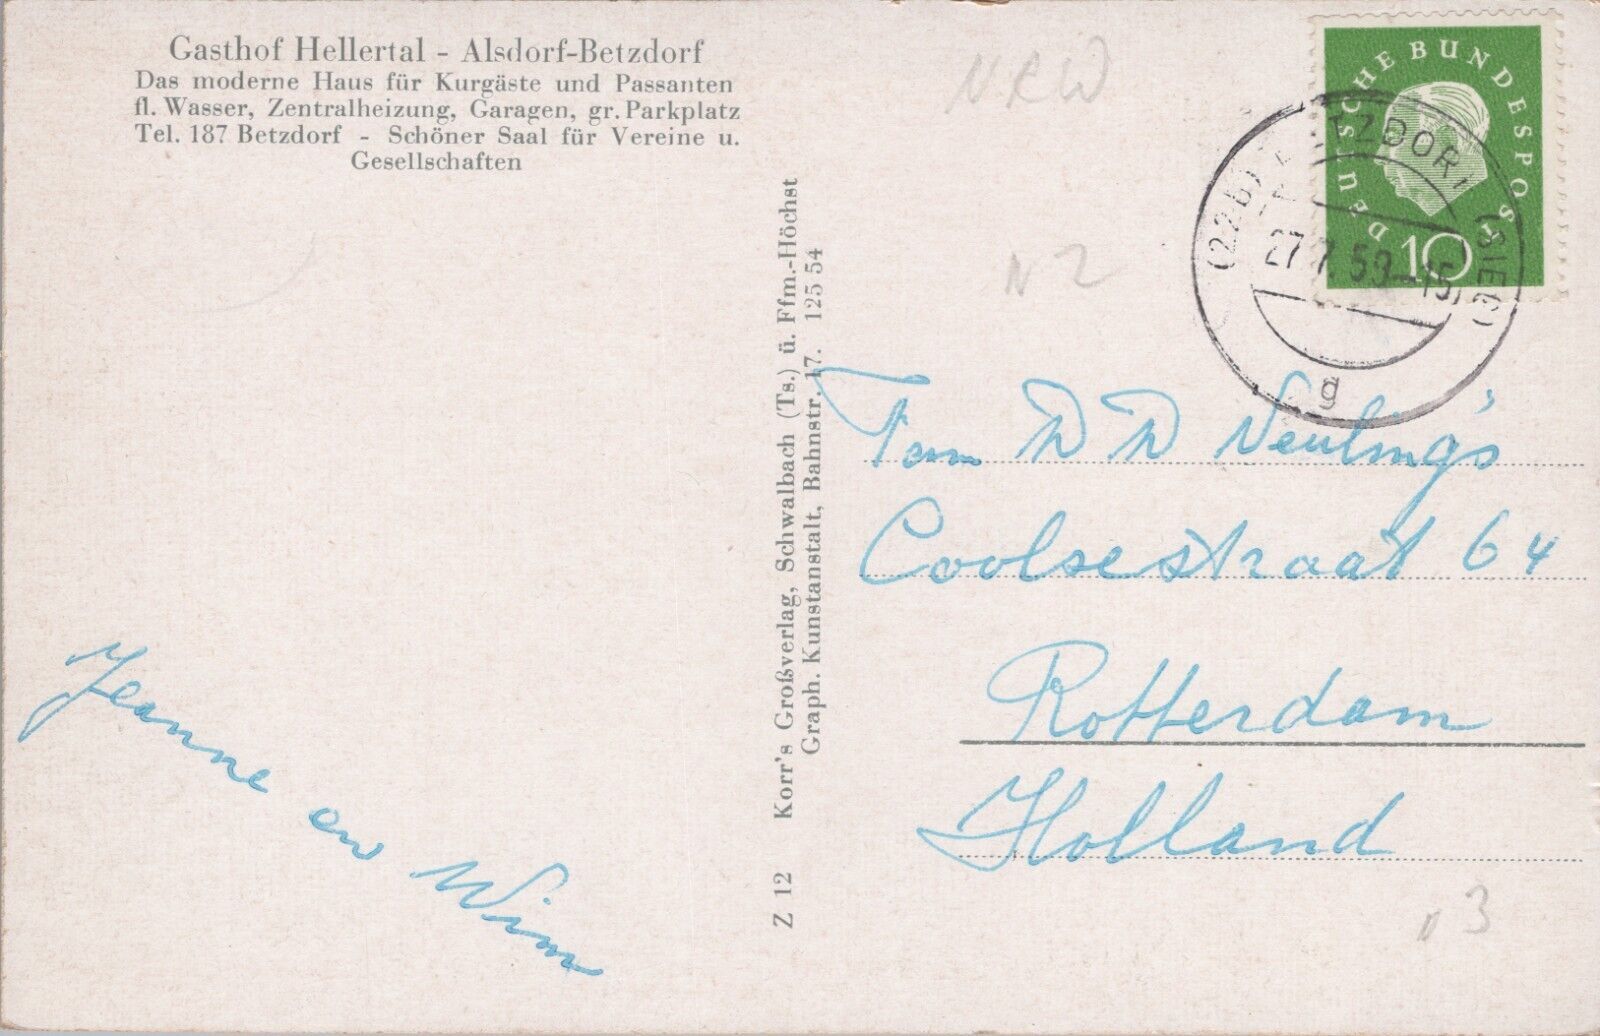 Gasthof Hellertal - Alsdorf-Betzdorf
Das moderne Haus für Kurgäste und Passanten
fl. Wasser, Zentralheizung, Garagen, gr. Parkplatz
Tel. 187 Betzdorf - Schöner Saal für Vereine u.
Gesellschaften
Jeanne en Wim
Z 12 Korr's Großverlag, Schwalbach (Ts.) ü. Ffm.-Höchst
Graph. Kunstanstalt, Bahnstr. 17. 125 54
NRW
N 2
DEUTSCHE BUNDESPOST
10
(22b) BETZDORF (SIEG)
27.7.59.-15
g
Fam
Coolsestraat 64
Rotterdam
Holland
n 3